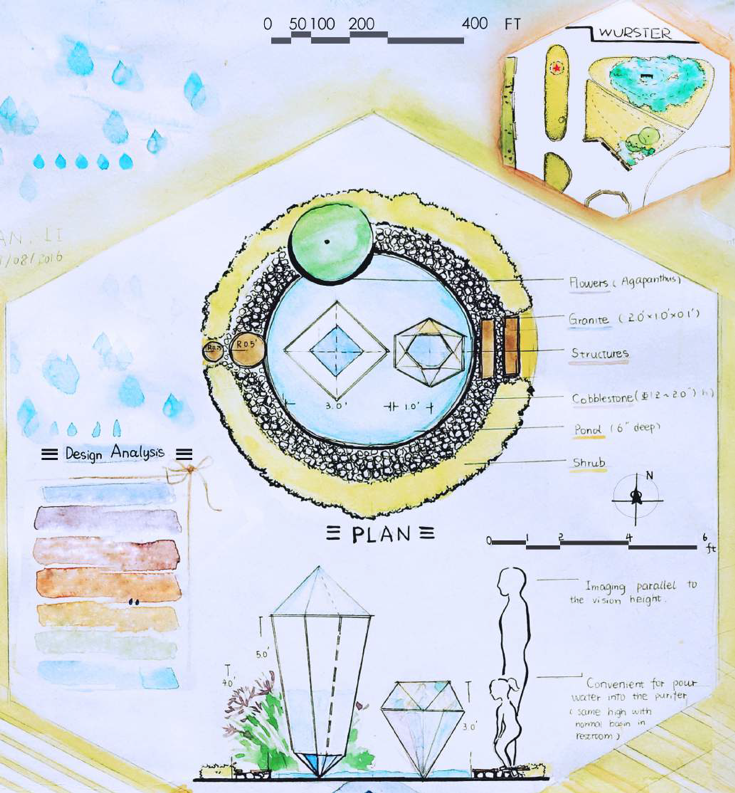 0 50 100 200 400 FT
WURSTER
AN. LI
/08/2016
Flowers ( Agapanthus)
Granite ( 2.0'×1.0'×0.1')
R0.5'
Structures
3.0' 1.0'
Pond ( 6" deep)
Shrub
Design Analysis
N
PLAN
0 1 2 4 6
ft
Imaging parallel to
the vision height.
5.0'
Convenient for pour
water into the purifer
( same high with
normal basin in
rezroom )
3.0'